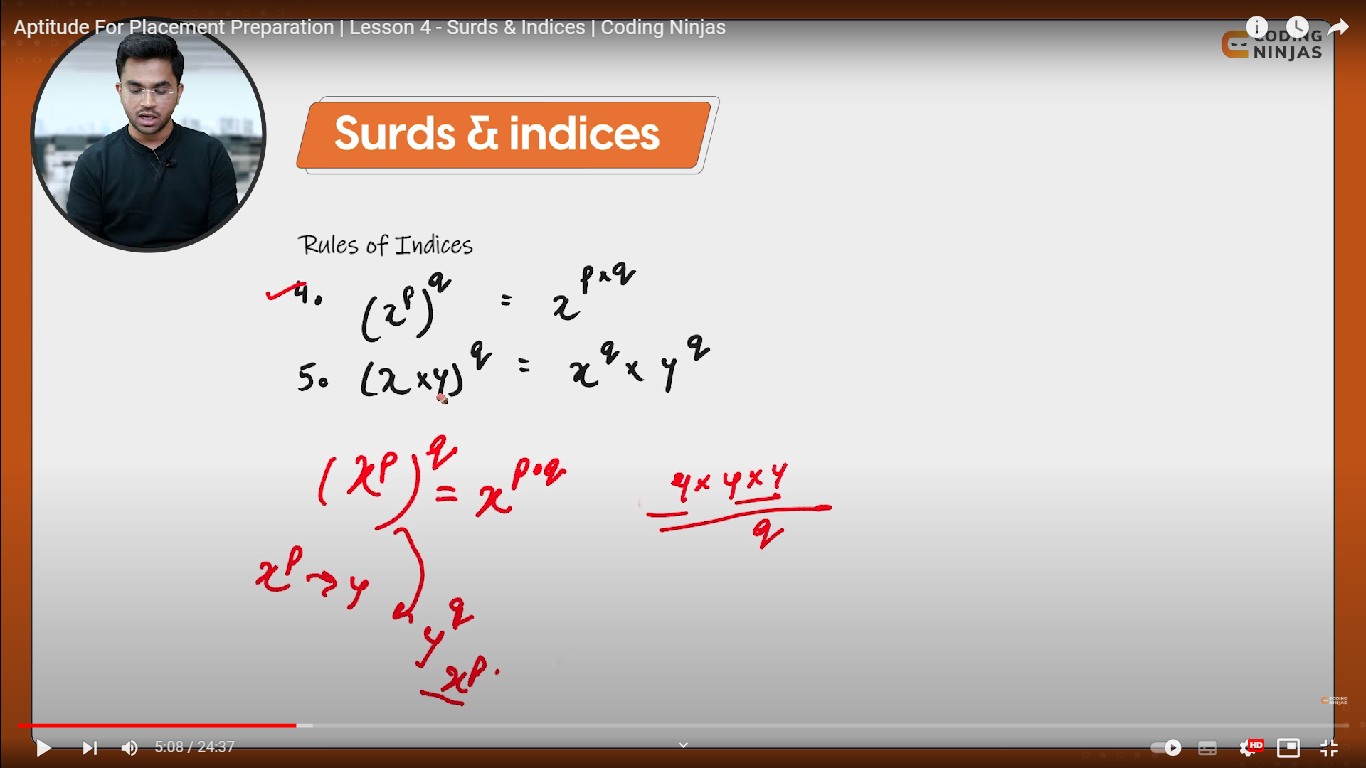 Aptitude For Placement Preparation | Lesson 4 - Surds & Indices | Coding Ninjas
CODING
NINJAS
Surds & indices
Rules of Indices
4. (x^p)^q = x^{p×q}
5. (x×y)^q = x^q × y^q
(x^p)^q = x^{p·q}
y×y×y
q
x^p → y
y^q
x^p .
CODING
NINJAS
5:08 / 24:37
HD